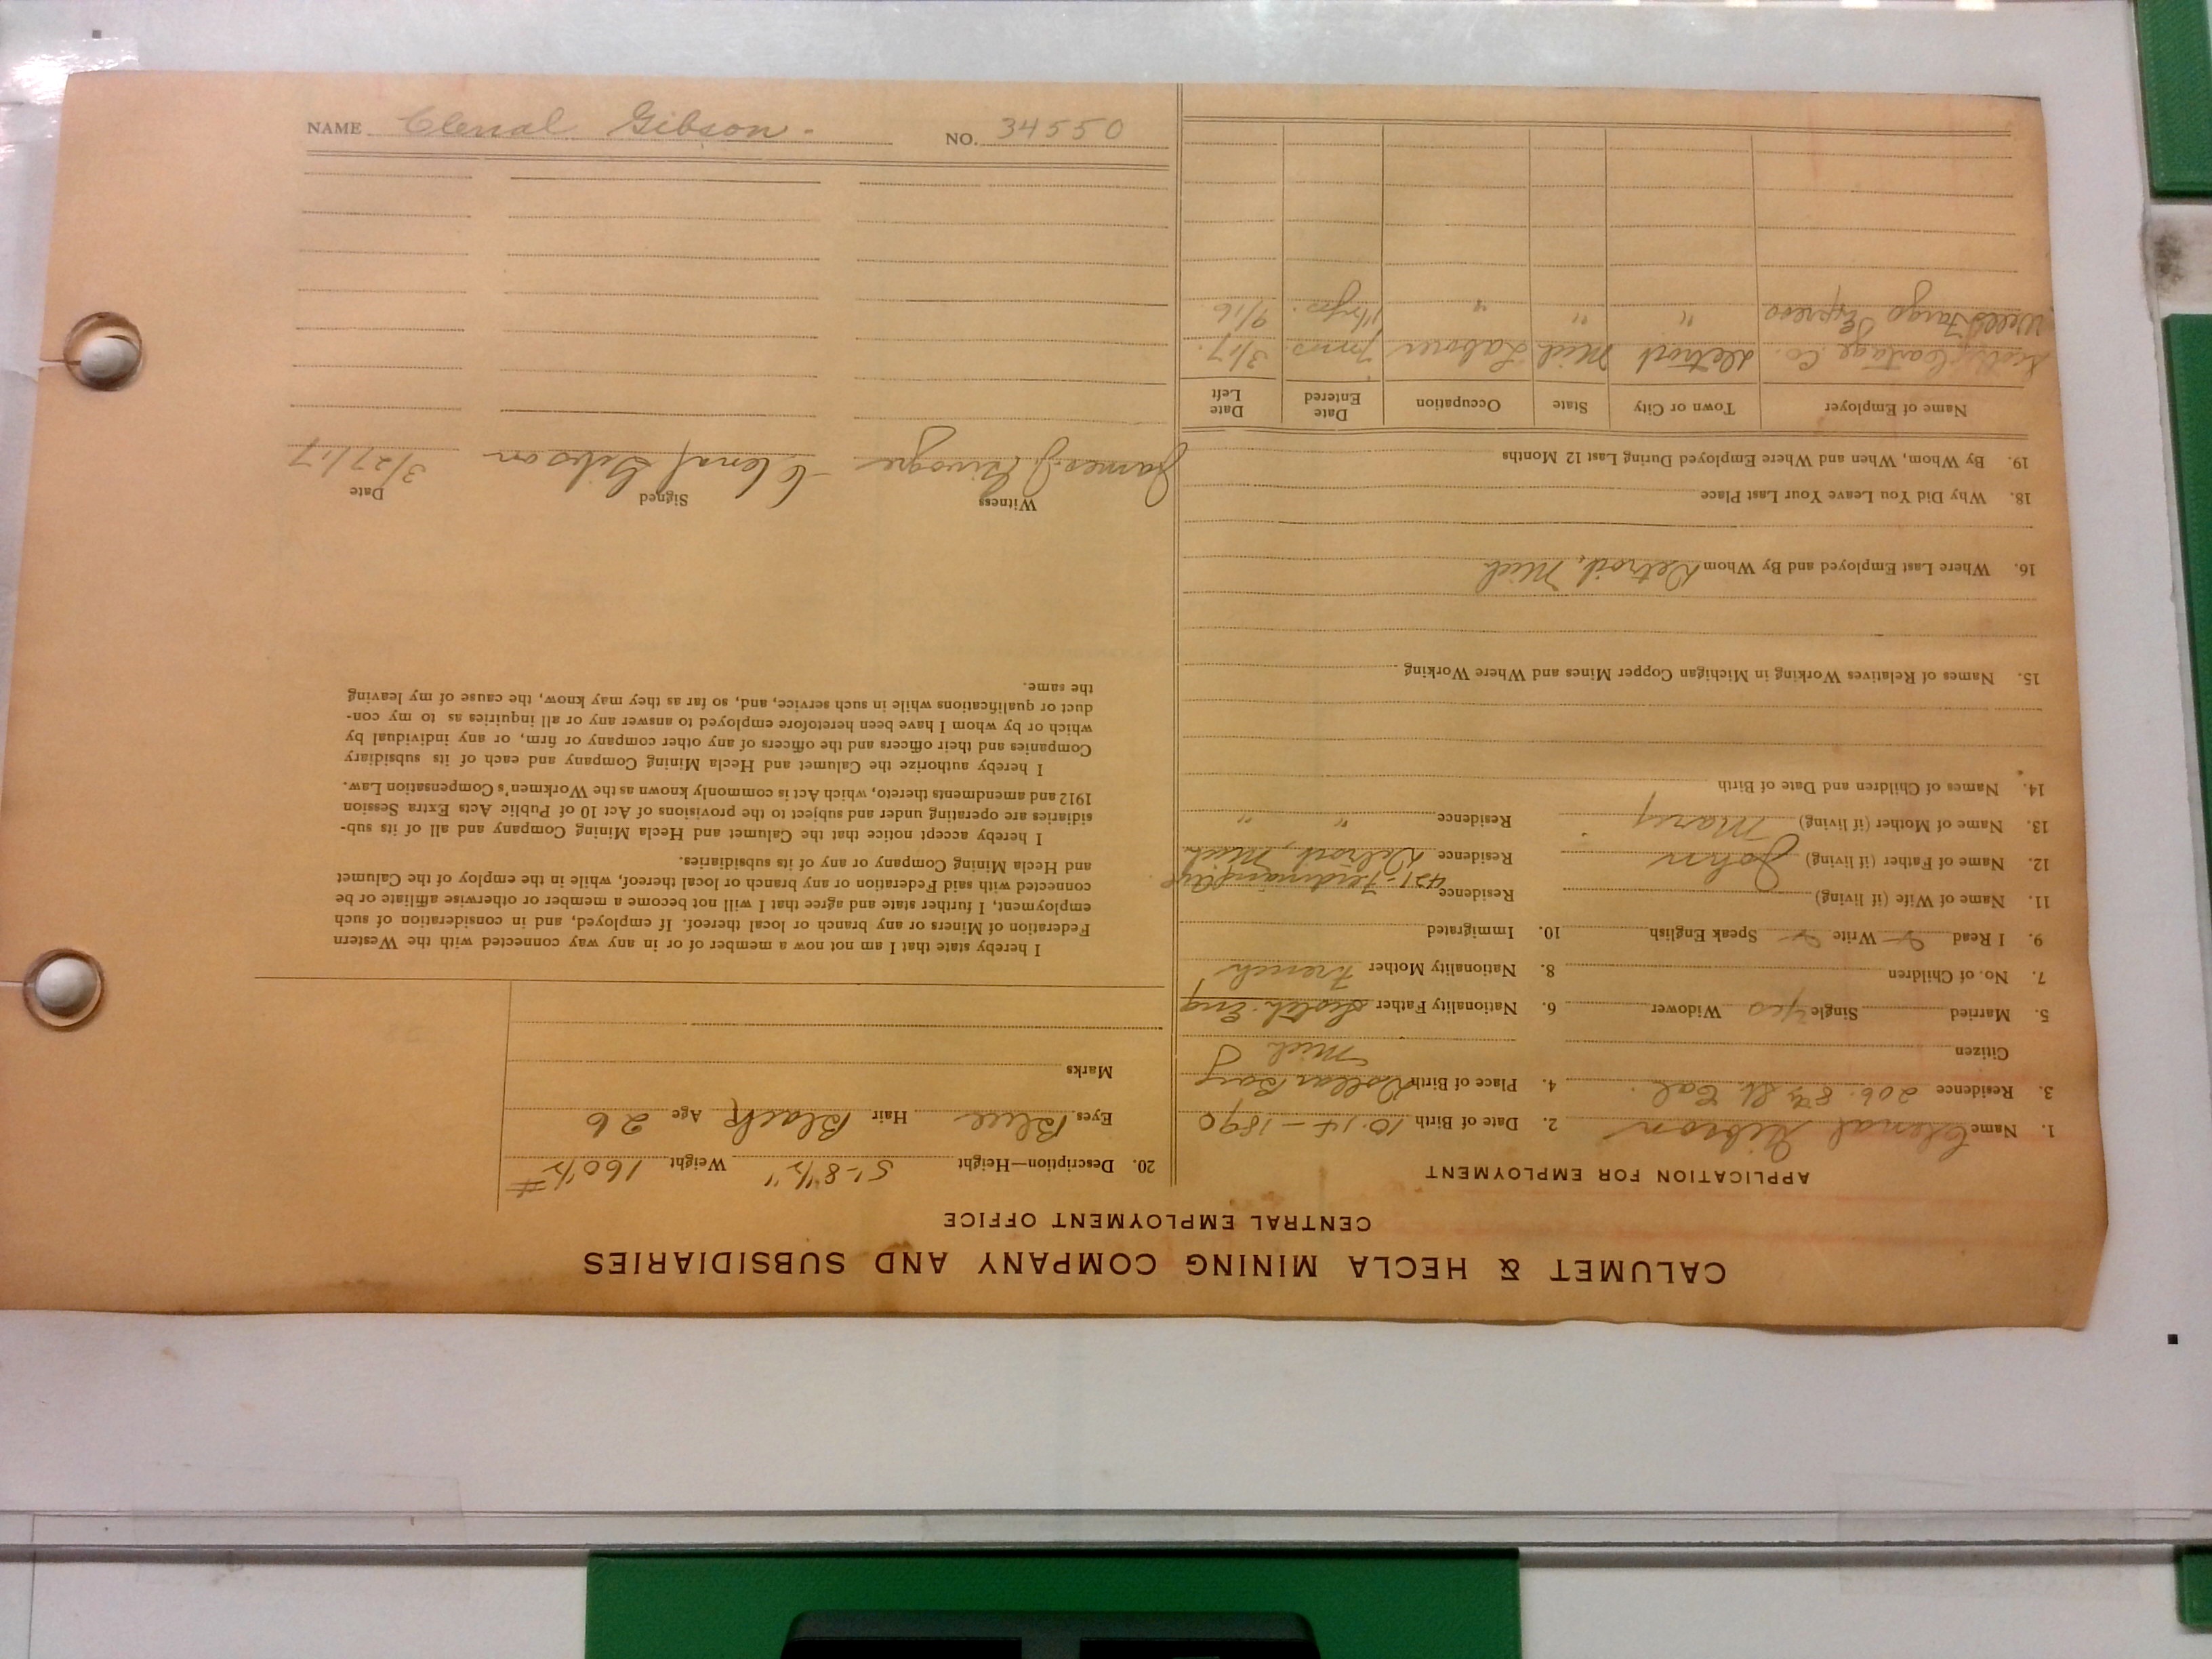 CALUMET & HECLA MINING COMPANY AND SUBSIDIARIES
CENTRAL EMPLOYMENT OFFICE
APPLICATION FOR EMPLOYMENT
1. Name Clenal Gibson 2. Date of Birth 10-14-1890
3. Residence 206. 8th St Cal. 4. Place of Birth Dollar Bay
Citizen Mich
5. Married Single yes Widower 6. Nationality Father Scotch Eng
7. No. of Children 8. Nationality Mother French
9. I Read Write Speak English 10. Immigrated
11. Name of Wife (if living) Residence
421-Ferdinand Ave
12. Name of Father (if living) John Residence Detroit, Mich
13. Name of Mother (if living) Mary Residence " "
14. Names of Children and Date of Birth
15. Names of Relatives Working in Michigan Copper Mines and Where Working
16. Where Last Employed and By Whom Detroit, Mich
18. Why Did You Leave Your Last Place
19. By Whom, When and Where Employed During Last 12 Months
Name of Employer Town or City State Occupation Date Entered Date Left
Cartage Co. Detroit Mich Laborer 7mos. 3/17.
Wells Fargo Express " " " 9/16
20. Description—Height 5'-8½" Weight 160½#
Eyes Blue Hair Black Age 26
Marks
I hereby state that I am not now a member of or in any way connected with the Western
Federation of Miners or any branch or local thereof. If employed, and in consideration of such
employment, I further state and agree that I will not become a member or otherwise affiliate or be
connected with said Federation or any branch or local thereof, while in the employ of the Calumet
and Hecla Mining Company or any of its subsidiaries.
I hereby accept notice that the Calumet and Hecla Mining Company and all of its sub-
sidiaries are operating under and subject to the provisions of Act 10 of Public Acts Extra Session
1912 and amendments thereto, which Act is commonly known as the Workmen's Compensation Law.
I hereby authorize the Calumet and Hecla Mining Company and each of its subsidiary
Companies and their officers and the officers of any other company or firm, or any individual by
which or by whom I have been heretofore employed to answer any or all inquiries as to my con-
duct or qualifications while in such service, and, so far as they may know, the cause of my leaving
the same.
Witness Signed Date
James J. Clenal Gibson 3/27/17
NAME Clenal Gibson. NO. 34550